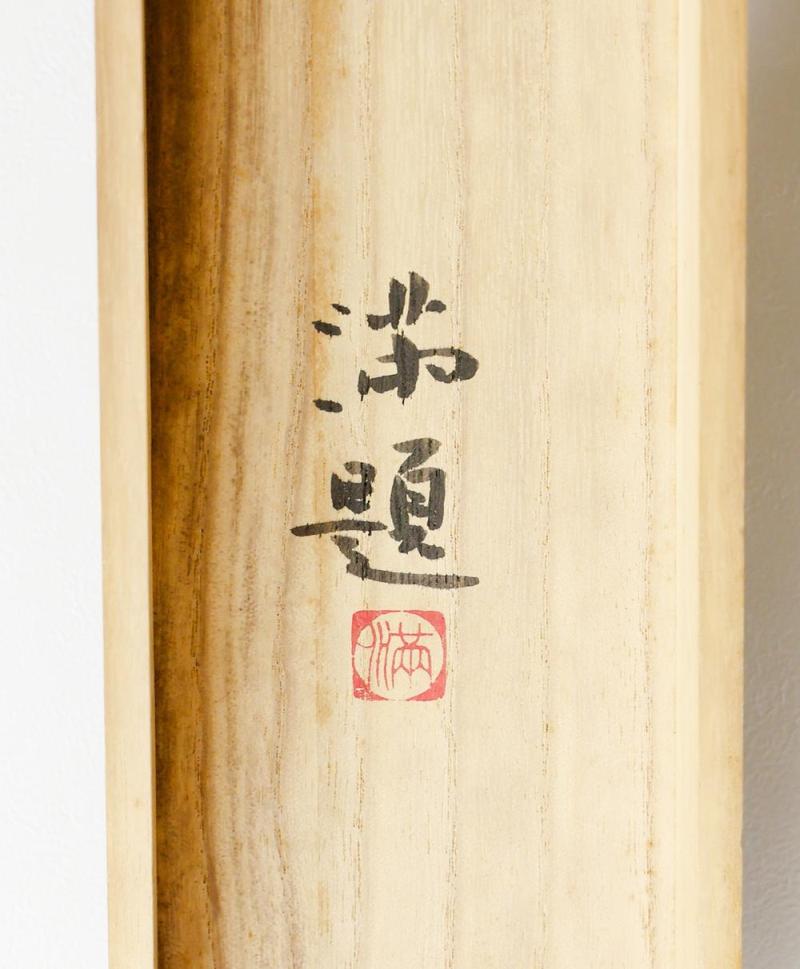 満
題
満